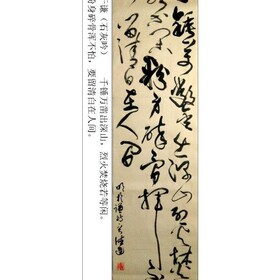 锤万凿出深山烈火焚烧
粉身碎骨浑
留清白在人间
明于谦诗
于谦（石灰吟）　千锤万凿出深山，烈火焚烧若等闲。
粉身碎骨浑不怕，要留清白在人间。